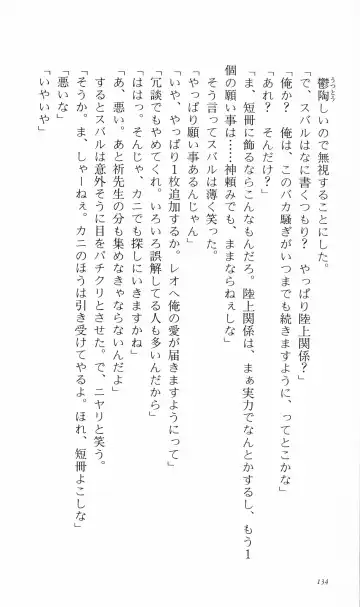 鬱陶しいので無視することにした。
うっとう
「で、スバルはなに書くつもり？　やっぱり陸上関係？」
「俺か？　俺は、このバカ騒ぎがいつまでも続きますように、ってとこかな」
「あれ？　そんだけ？」
「ま、短冊に飾るならこんなもんだろ。陸上関係は、まぁ実力でなんとかするし、もう１
個の願い事は……神頼みでも、ままならねぇしな」
そう言ってスバルは薄く笑った。
「やっぱり願い事あるんじゃん」
「いや、やっぱり１枚追加するか。レオへ俺の愛が届きますようにって」
「冗談でもやめてくれ。いろいろ誤解してる人も多いんだから」
「ははっ。そんじゃ、カニでも探しにいきますかね」
「あ、悪い。あと祈先生の分も集めなきゃならないんだよ」
するとスバルは意外そうに目をパチクリとさせた。で、ニヤリと笑う。
「そうか。ま、しゃーねぇ。カニのほうは引き受けてやるよ。ほれ、短冊よこしな」
「悪いな」
「いやいや」
134